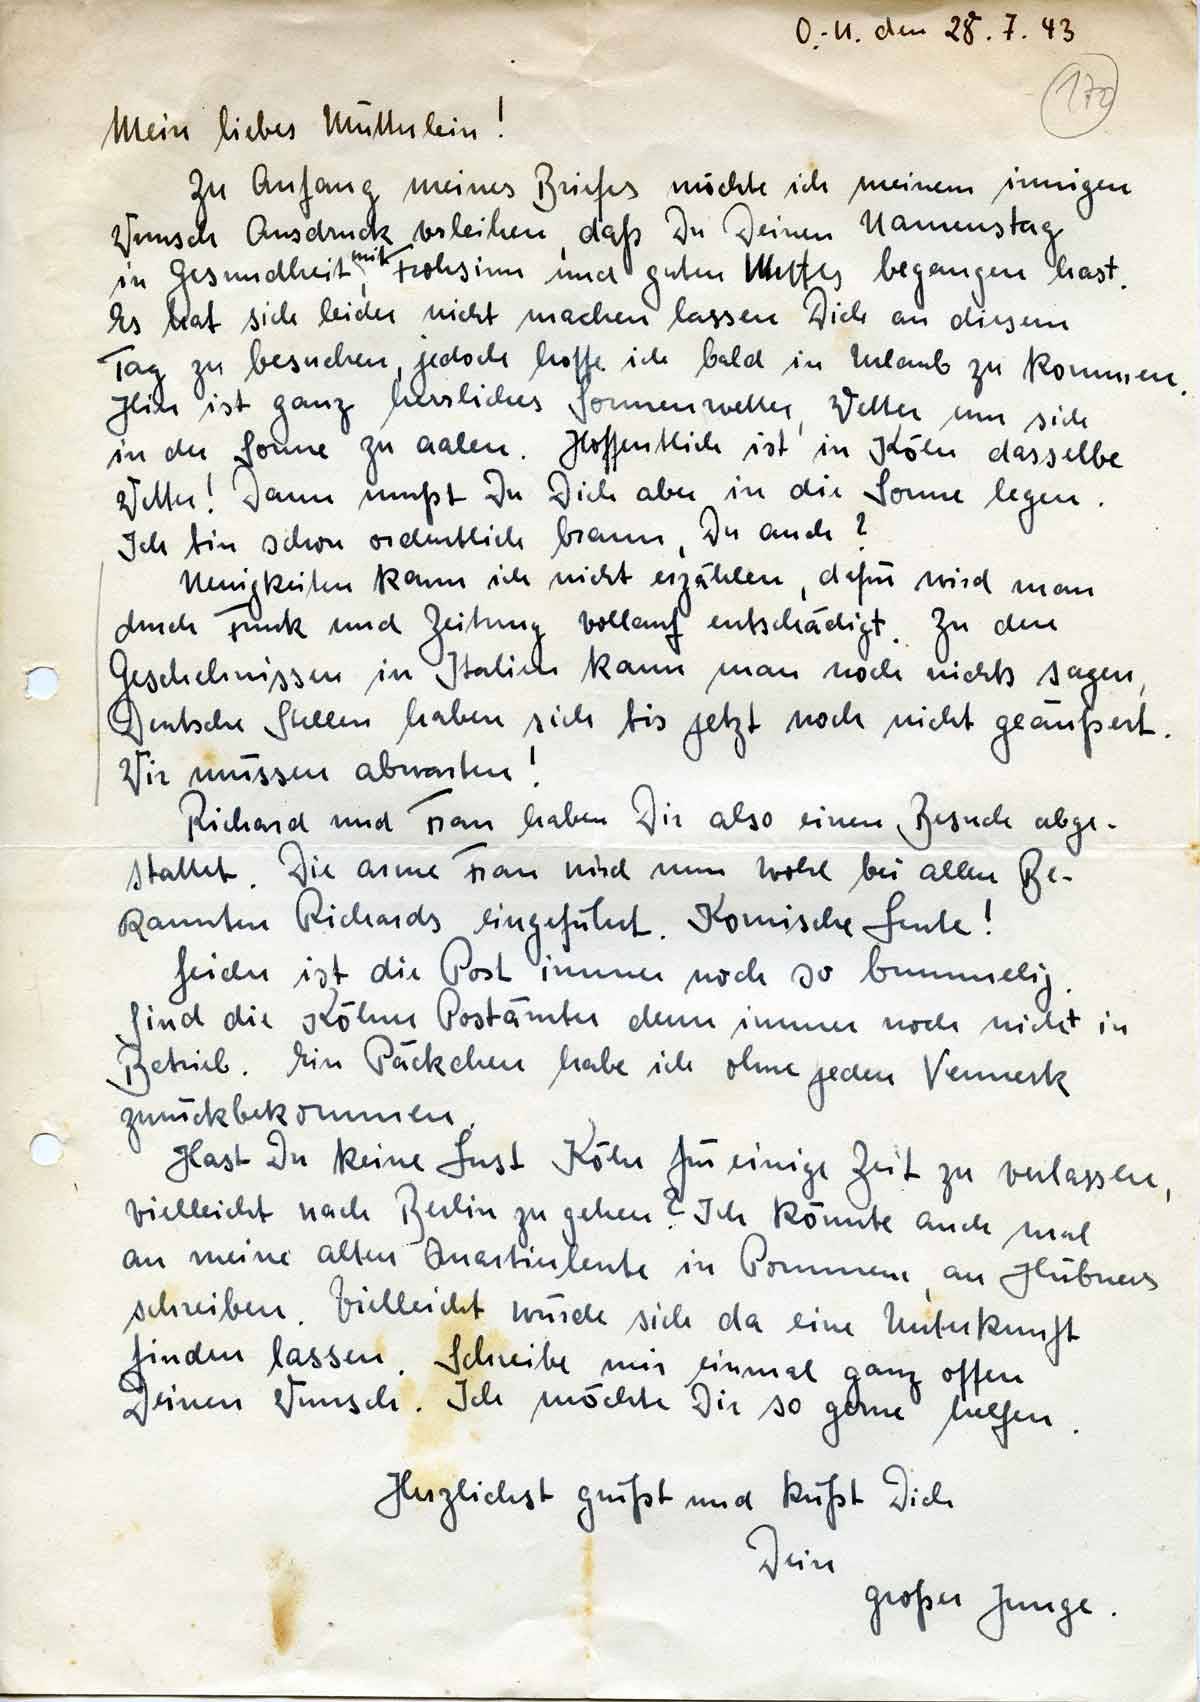 O.-U. den 28.7.43
172
Mein liebes Mütterlein!
Zu Anfang meines Briefes möchte ich meinem innigen
Wunsch Ausdruck verleihen, daß Du Deinen Namenstag
in Gesundheit, mit Frohsinn und guten Mutes begangen hast.
Es hat sich leider nicht machen lassen Dich an diesem
Tag zu besuchen, jedoch hoffe ich bald in Urlaub zu kommen.
Hier ist ganz herrliches Sonnenwetter, Wetter um sich
in der Sonne zu aalen. Hoffentlich ist in Köln dasselbe
Wetter! Dann mußt Du Dich aber in die Sonne legen.
Ich bin schon ordentlich braun, Du auch?
Neuigkeiten kann ich nicht erzählen, dafür wird man
durch Funk und Zeitung vollauf entschädigt. Zu den
Geschehnissen in Italien kann man noch nichts sagen,
Deutsche Stellen haben sich bis jetzt noch nicht geäußert.
Wir müssen abwarten!
Richard und Frau haben Dir also einen Besuch abge-
stattet. Die arme Frau wird nun wohl bei allen Be-
kannten Richards eingeführt. Komische Leute!
Leider ist die Post immer noch so bummelig.
Sind die Kölner Postämter denn immer noch nicht in
Betrieb. Ein Päckchen habe ich ohne jeden Vermerk
zurückbekommen.
Hast Du keine Lust Köln für einige Zeit zu verlassen,
vielleicht nach Berlin zu gehen? Ich könnte auch mal
an meine alten Quartierleute in Pommern, an Hübners
schreiben. Vielleicht würde sich da eine Unterkunft
finden lassen. Schreibe mir einmal ganz offen
Deinen Wunsch. Ich möchte Dir so gerne helfen.
Herzlichst grüßt und küßt Dich
Dein
großer Junge.